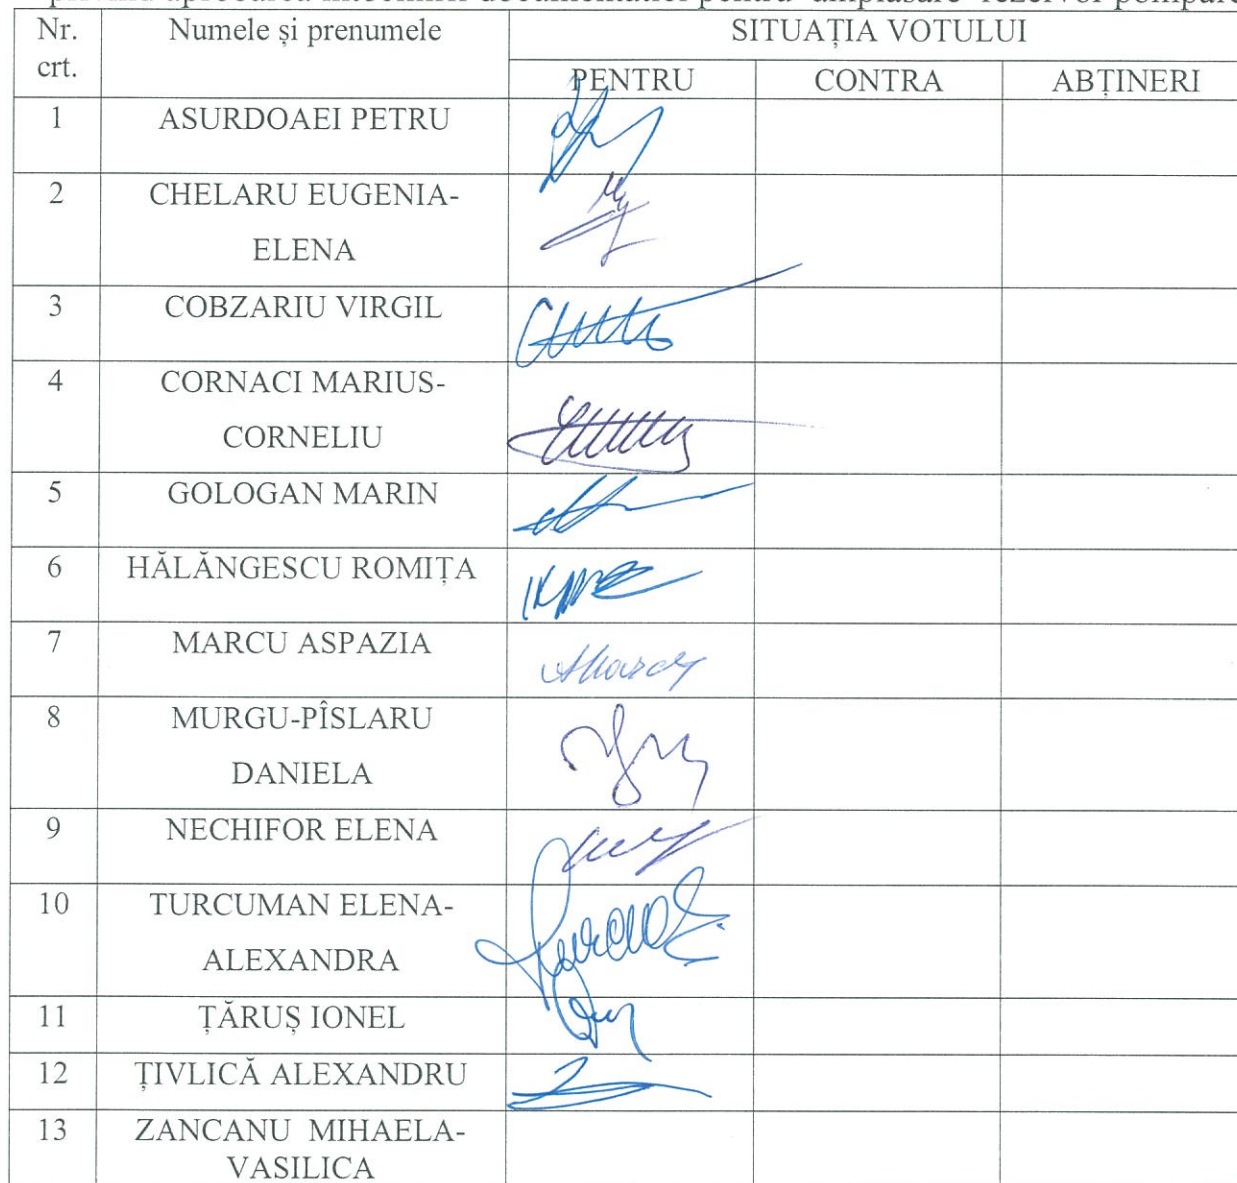 privind aprobarea întocmirii documentației pentru amplasare rezervor pompare
Nr. crt. Numele și prenumele SITUAȚIA VOTULUI
PENTRU CONTRA ABȚINERI
1 ASURDOAEI PETRU
2 CHELARU EUGENIA-
ELENA
3 COBZARIU VIRGIL
4 CORNACI MARIUS-
CORNELIU
5 GOLOGAN MARIN
6 HĂLĂNGESCU ROMIȚA
7 MARCU ASPAZIA
8 MURGU-PÎSLARU
DANIELA
9 NECHIFOR ELENA
10 TURCUMAN ELENA-
ALEXANDRA
11 ȚĂRUȘ IONEL
12 ȚIVLICĂ ALEXANDRU
13 ZANCANU MIHAELA-
VASILICA